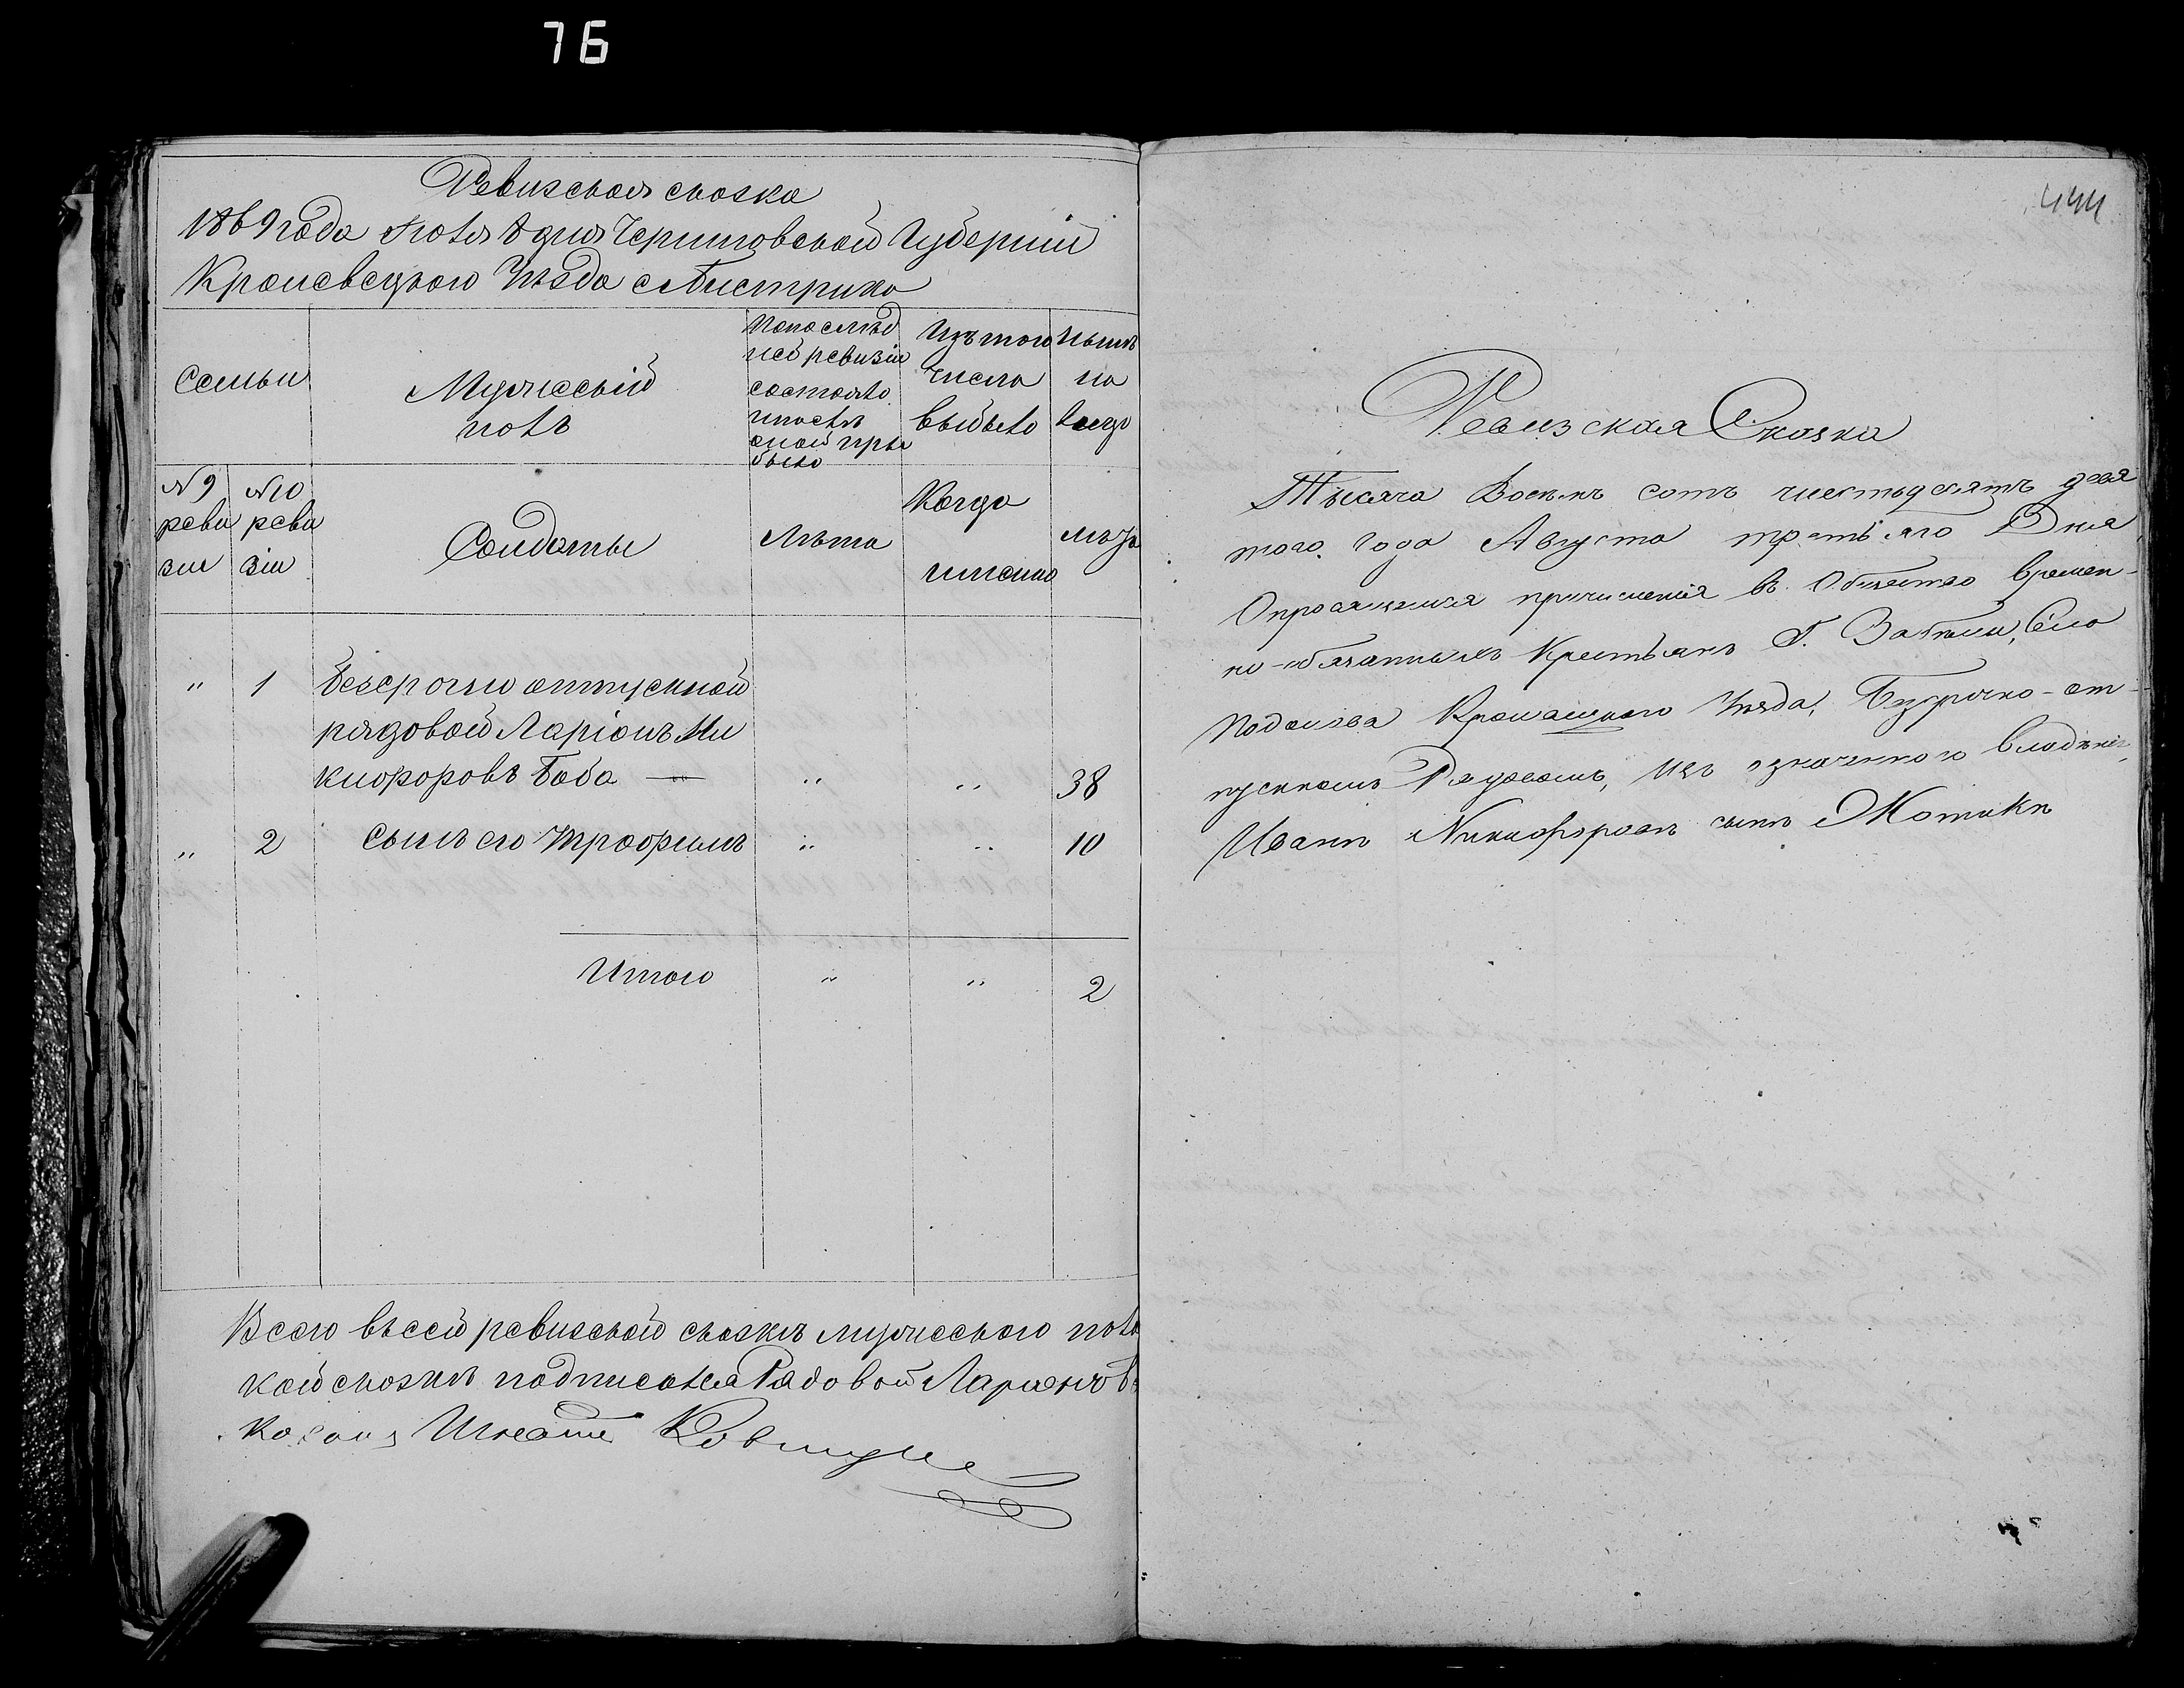 76
Ревизская сказка
1869 года Июля 8 дня Черниговской Губерніи
Кролевецкого Уѣзда с Быстрика
Семьи
Мужескій
полъ
По послѣд
ней ревизіи
состояло
и послѣ
оной при
было
Изъ того
числа
выбыло
Нынѣ
на
лицо
№ 9
реви
зіи
№ 10
реви
зіи
Солдаты
Лѣта
Когда
именно
лѣта
" 1 Безсрочно отпускной
рядовой Ларіонъ Ни
кифоровъ Баба — " " 38
" 2 Сынъ его Трофимъ " " 10
Итого " " 2
Всего въ сей ревизской сказкѣ мужеского пола
кой сказкѣ подписался Рядовой
Игнатъ
444
Ревизская Сказка
Тысяча Восемъ сотъ шестьдесятъ девя
того Года Августа третьяго Дня,
О причисленія въ Общество времен-
но-обязанныхъ Крестьянъ Г. Забѣлы, Села
Подолова Кролевецкого Уѣзда, Безсрочно-от-
пускномъ Рядовомъ, изъ означенного владѣнія,
Иванѣ Никифоровѣ сынѣ